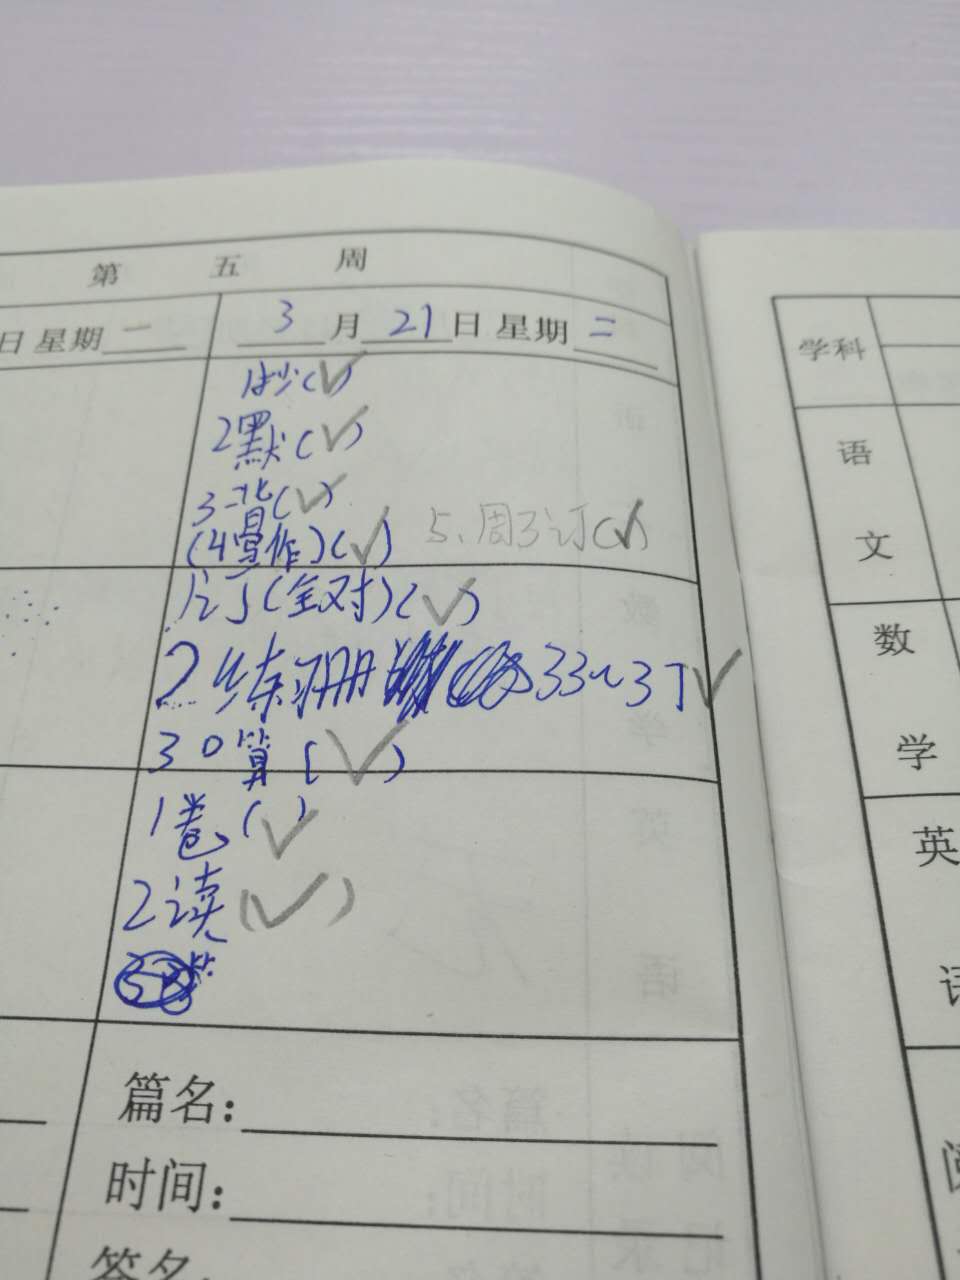 第 五 周
日 星期 一
3 月 21 日 星期 二
1抄(✓)
2默(✓)
3背(✓)
(4写作)(✓)
5、周3订(✓)
1订(全对)(✓)
2练册 33~37✓
3口算[✓)
1卷(✓)
2读(✓)
篇名:
时间:
签名:
学科
语
文
数
学
英
语
阅